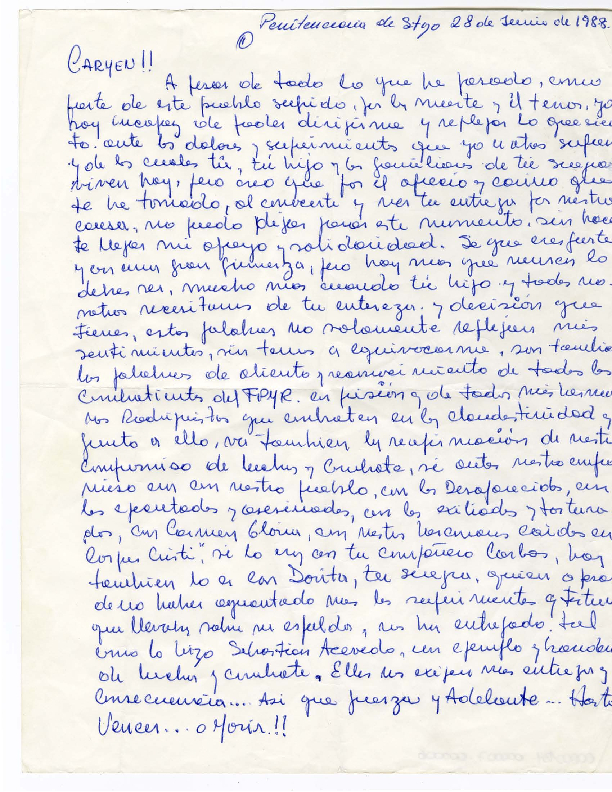 Penitenciaria de Stgo 28 de Junio de 1988.
①
CARMEN!!
A pesar de todo lo que he pasado, como
parte de este pueblo sufrido, por la muerte y el terror, yo
hoy incapaz de poder dirijirme y reflejar lo que sien
to. ante los dolores y sufrimientos que yo u otros sufren
y de los cuales tú, tú hijo y los familiares de tú suegra
viven hoy, pero creo que por el aprecio y cariño que
te he tomado, al conocerte y ver tu entrega por nuestra
causa, no puedo dejar pasar este momento, sin hacer
te llegar mi apoyo y solidaridad. Se que eres fuerte
y con una gran firmeza, pero hoy mas que nunca lo
debes ser, mucho mas cuando tú hijo y todos no-
sotros necesitamos de tu entereza. y decisión que
tienes, estas palabras no solamente reflejan mis
sentimientos, sin temor a equivocarme, son también
las palabras de aliento y reconocimiento de todos los
combatientes del FPMR. en prisión y de todos mis herma
nos Rodriguistas que combaten en la clandestinidad y
junto a ello, va tambien la reafirmación de nuestro
compromiso de lucha y Combate, si antes nuestro compro
miso era con nuestro pueblo, con los Desaparecidos, con
los ejecutados y asesinados, con los exiliados y tortura
dos, con Carmen Gloria, con nuestros hermanos caidos en
Corpus Cristi", si lo era con tu compañero Carlos, hoy
tambien lo es con Dorita, tu suegra, quien a pesar
de no haber aguantado mas los sufrimientos y tortura
que llevaba sobre su espalda, nos ha entregado. tal
como lo hizo Sebastián Acevedo, un ejemplo y bandera
de lucha y combate. Ellos nos exijen mas entrega y
consecuencia.... Asi que fuerza y Adelante ... Hasta
Vencer... o Morir!!